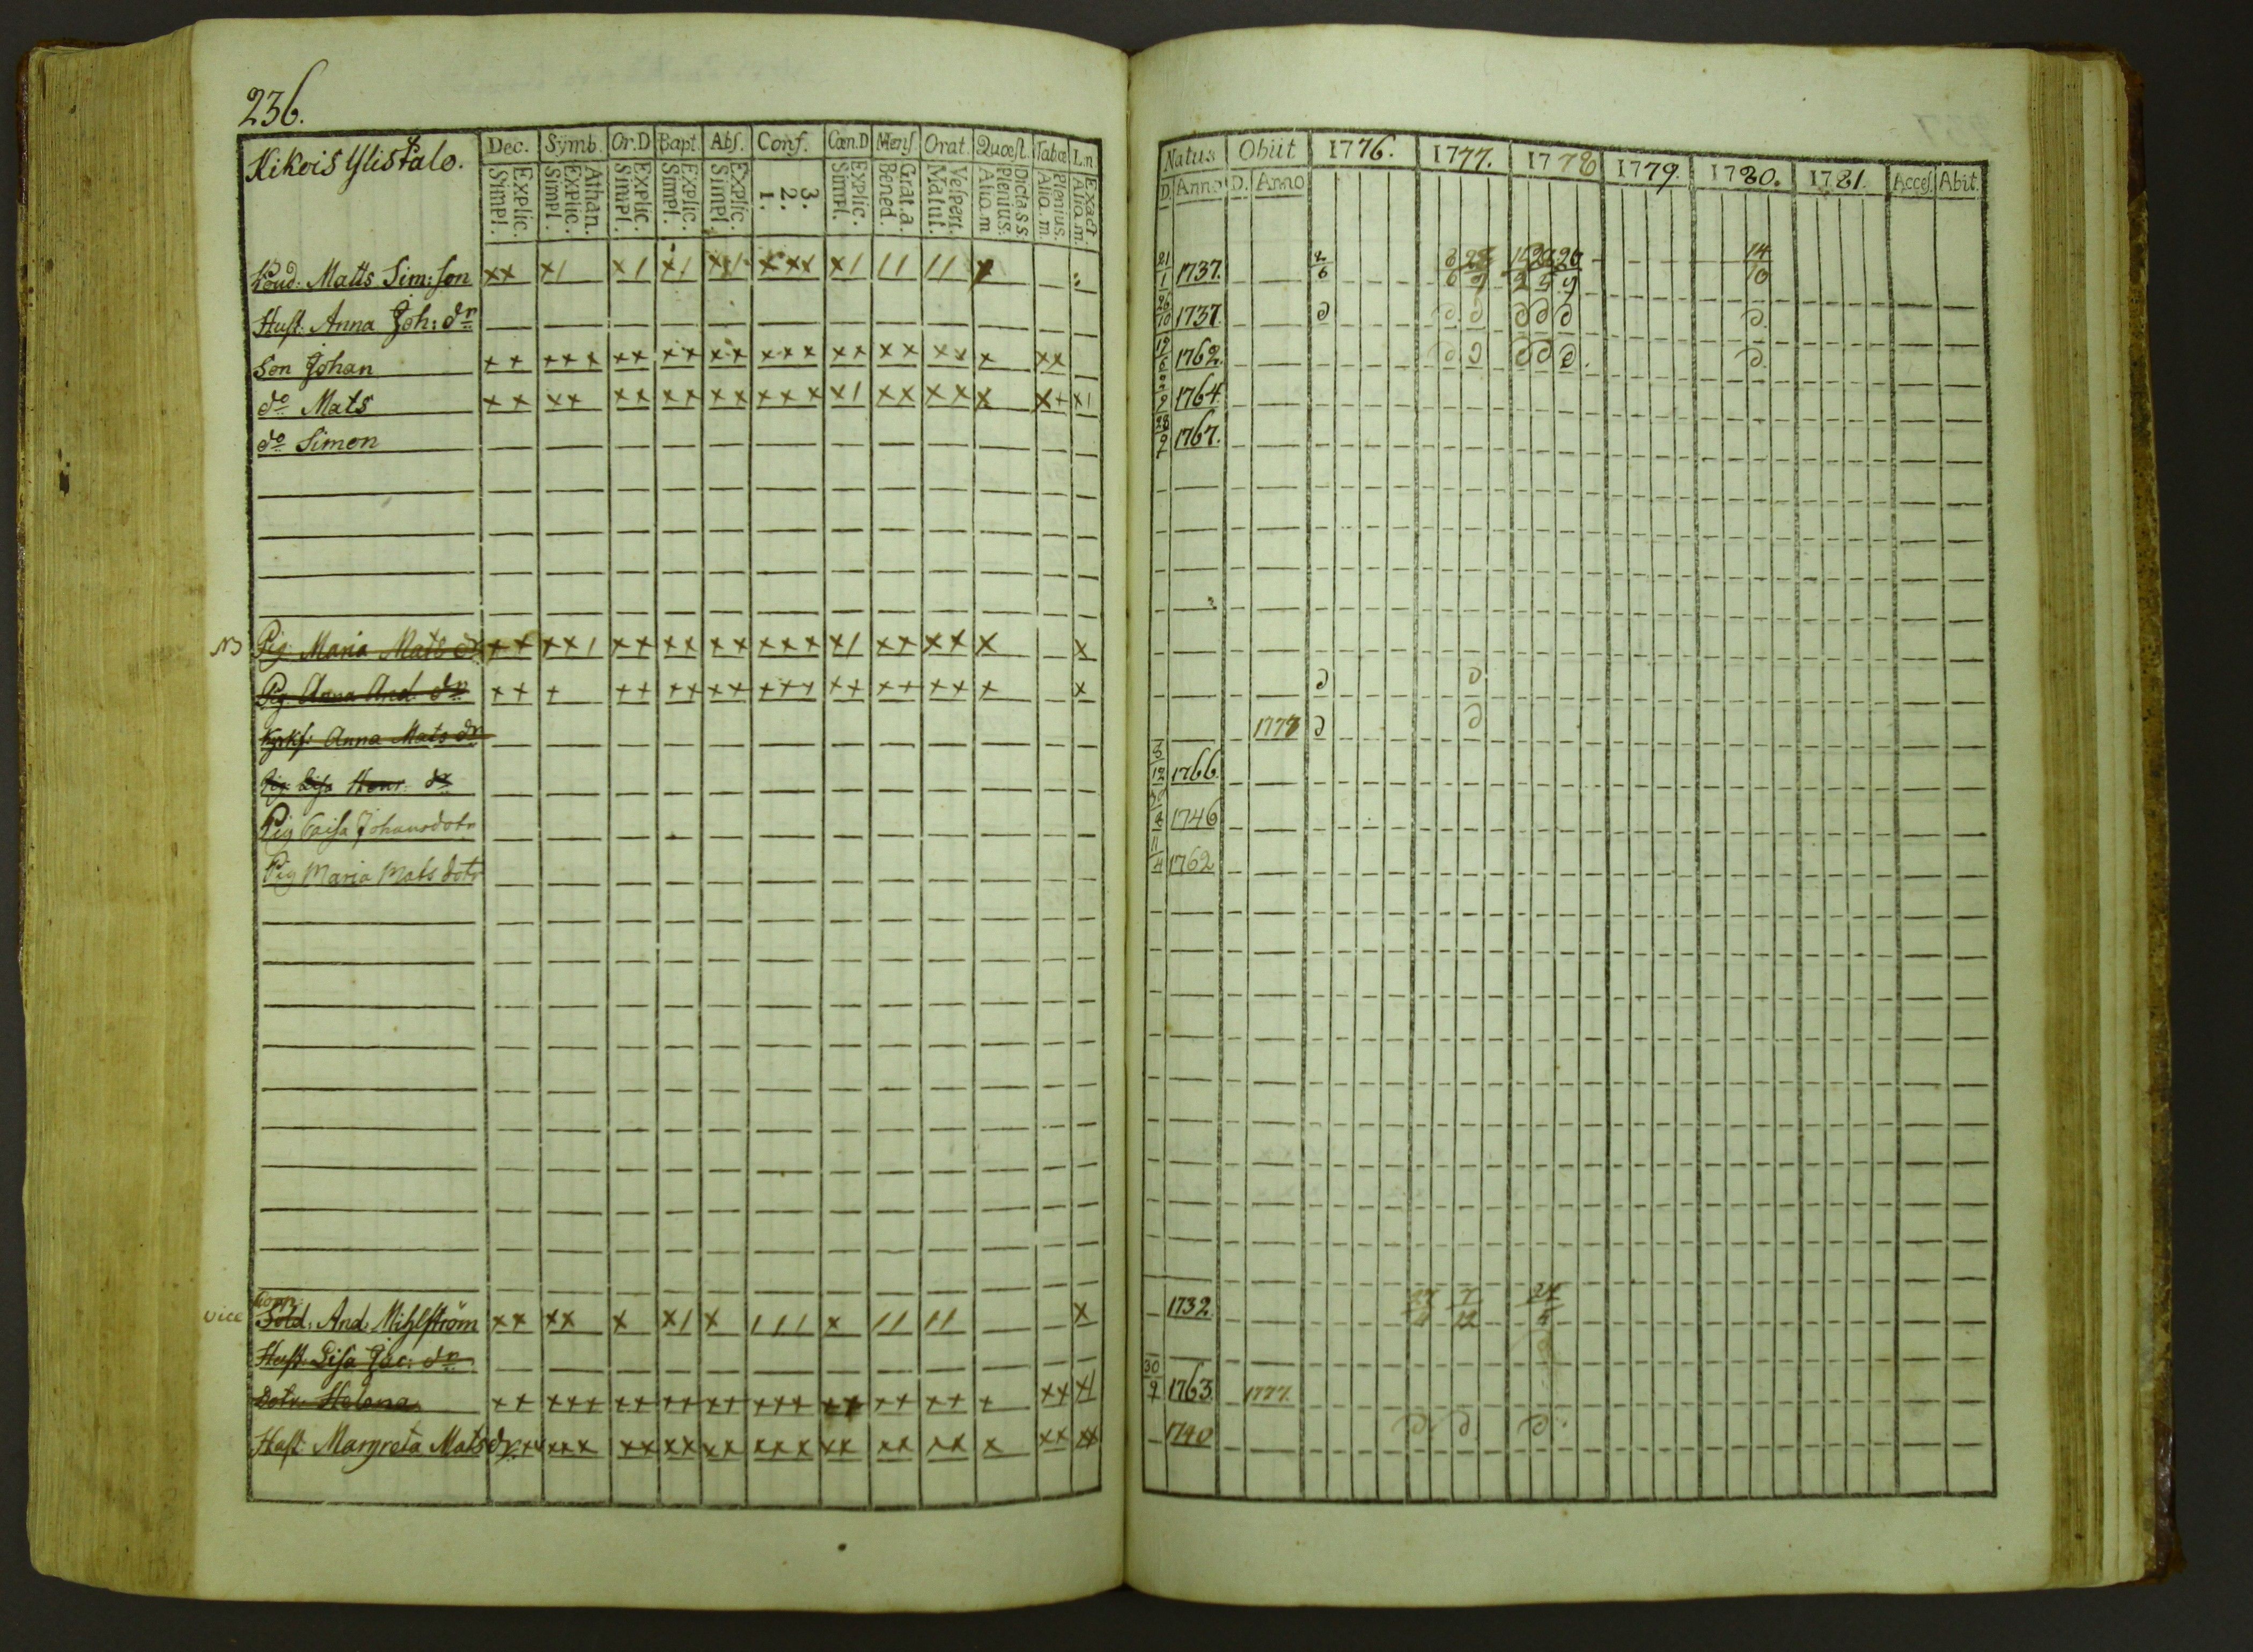 236.
Kikois Ylistalo.
Dec. Symb. Or.D Bapt. Abs. Conf. Cœn.D Mens Orat. Quæst Tabæ L.n
Explic. Simpl. Athan. Explic. Simpl. Explic. Simpl. Explic. Simpl. Explic. Simpl. 3. 2. 1. Explic. Simpl. Grat.a. Bened. Vespert. Matut. Dicta S S. Plenius. Alia.m Plenius. Alia.m. Exact. Alia.m.
Natus Obiit 1776. 1777. 1778 1779. 1780. 1781. Acces. Abit.
D. Anno D. Anno
Matts Sim: son xx x/ x/ x/ x/ xxx x/ // // x 21/1 1737. 14/10
Hust. Anna Joh: dr 26/10 1737.
Son Johan xx xxx xx xx xx xxx xx xx xx x xx 1762.
do Mats xx xx xx xx xx xxx x/ xx xx x xx x/ 1764.
do Simon 28/9 1767.
NB Pig. Maria Mats dr xx xx/ xx xx xx xxx x/ xx xx x x
Pig. Anna And. dr xx x xx xx xx xxx xx xx xx x x
Anna Mats dr 1778
Pig. Lisa Henr. dr 3/12 1766.
Pig Caisa Johansdotr 1746
Pig Maria Mats dotr 11/4 1762
vice Corp.
Sold: And: Mihlström xx xx x x/ x /// x // // x 1732. 7/12
Hust. Lisa Jac: dr
Dotr. Helena xx xxx xx xx xx xxx xx xx xx x xx x/ 30/9 1763. 1777.
Hust. Margreta Mats dr. xx xxx xx xx xx xxx xx xx xx x xx xx 1740